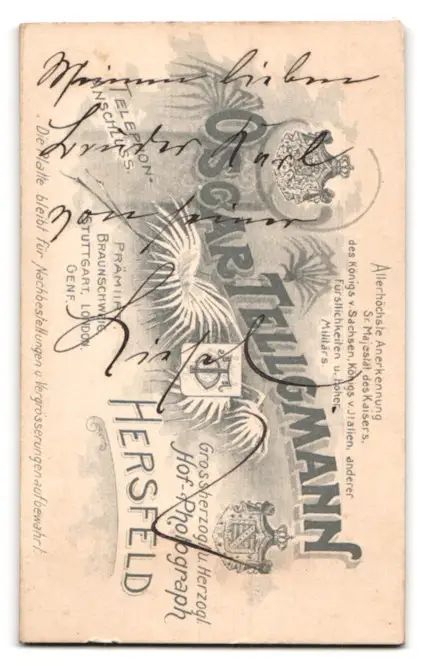 Meinem lieben
Bruder Karl
von seiner
OSCAR TELLGMANN
HERSFELD
Grossherzogl. u. Herzogl.
Hof-Photograph
TELEPHON-
ANSCHLUSS
Allerhöchste Anerkennung
Sr. Majestät des Kaisers,
des Königs v. Sachsen, Königs v. Italien, anderer
Fürstlichkeiten u. hoher
Militärs
PRÄMIIRT
BRAUNSCHWEIG
STUTTGART, LONDON
GENF.
Die Platte bleibt für Nachbestellungen u. Vergrösserungen aufbewahrt!